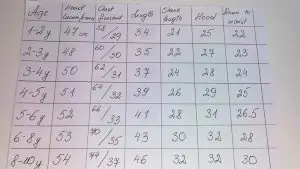 Age Head Chest Length Sleeve length Hood
1-2y 47 cm 58/29 34 21 25 22
2-3y 48 60/30 3.5 22 27 23
3-4y 50 62/31 37 24 28 24
4-5y 51 64/32 39 26 29 25
5-6y 52 66/33 41 28 31 26.5
6-8y 53 70/35 43 30 32 28
8-10y 54 74/37 46 32 32 30